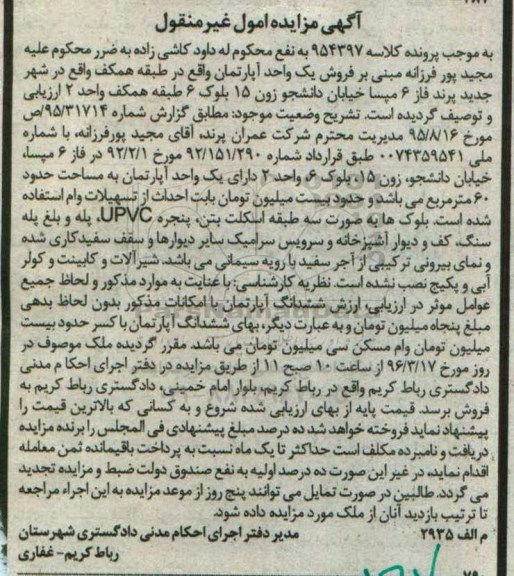 آگهی مزایده اموال غیر منقول
به موجب پرونده کلاسه ۹۵۴۳۹۷ به نفع محکوم له داود کاشی زاده به ضرر محکوم علیه
مجید پور فرزانه مبنی بر فروش یک واحد آپارتمان واقع در طبقه همکف واقع در شهر
جدید پرند فاز ۶ مپسا خیابان دانشجو زون ۱۵ بلوک ۶ طبقه همکف واحد ۲ ارزیابی
و توصیف گردیده است. تشریح وضعیت موجود: مطابق گزارش شماره ۹۵/۳۱۷۱۴/ص
مورخ ۹۵/۸/۱۶ مدیریت محترم شرکت عمران پرند، آقای مجید پورفرزانه، با شماره
ملی ۰۰۷۴۳۵۹۵۴۱ طبق قرارداد شماره ۹۲/۱۵۱/۲۹۰ مورخ ۹۲/۲/۱ در فاز ۶ مپسا،
خیابان دانشجو، زون ۱۵، بلوک ۶، واحد ۲ دارای یک واحد آپارتمان به مساحت حدود
۶۰ مترمربع می باشد و حدود بیست میلیون تومان بابت احداث از تسهیلات وام استفاده
شده است. بلوک ها به صورت سه طبقه اسکلت بتن، پنجره UPVC، پله و بلغ پله
سنگ، کف و دیوار آشپزخانه و سرویس سرامیک سایر دیوارها و سقف سفیدکاری شده
و نمای بیرونی ترکیبی از آجر سفید با رویه سیمانی می باشد. شیرآلات و کابینت و کولر
آبی و پکیج نصب نشده است. نظریه کارشناسی: با عنایت به موارد مذکور و لحاظ جمیع
عوامل موثر در ارزیابی، ارزش ششدانگ آپارتمان با امکانات مذکور بدون لحاظ بدهی
مبلغ پنجاه میلیون تومان و به عبارت دیگر، بهای ششدانگ آپارتمان با کسر حدود بیست
میلیون تومان وام مسکن سی میلیون تومان می باشد. مقرر گردیده ملک موصوف در
روز مورخ ۹۶/۳/۱۷ از ساعت ۱۰ صبح ۱۱ از طریق مزایده در دفتر اجرای احکام مدنی
دادگستری رباط کریم واقع در رباط کریم، بلوار امام خمینی، دادگستری رباط کریم به
فروش برسد. قیمت پایه از بهای ارزیابی شده شروع و به کسانی که بالاترین قیمت را
پیشنهاد نماید فروخته خواهد شد ده درصد مبلغ پیشنهادی فی المجلس را برنده مزایده
دریافت و نامبرده مکلف است حداکثر تا یک ماه نسبت به پرداخت باقیمانده ثمن معامله
اقدام نماید، در غیر این صورت ده درصد اولیه به نفع صندوق دولت ضبط و مزایده تجدید
می گردد. طالبین در صورت تمایل می توانند پنج روز از موعد مزایده به این اجراء مراجعه
تا ترتیب بازدید آنان از ملک مورد مزایده داده شود.
م الف ۲۹۳۵ مدیر دفتر اجرای احکام مدنی دادگستری شهرستان
رباط کریم- غفاری